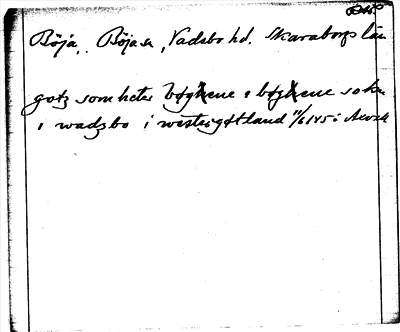 Böja, Böja sn, Vadsbo hd. Skaraborgs län
gotz som heter bøghene i bøghene sokn
i wadzbo i westergøtland 11/6 145